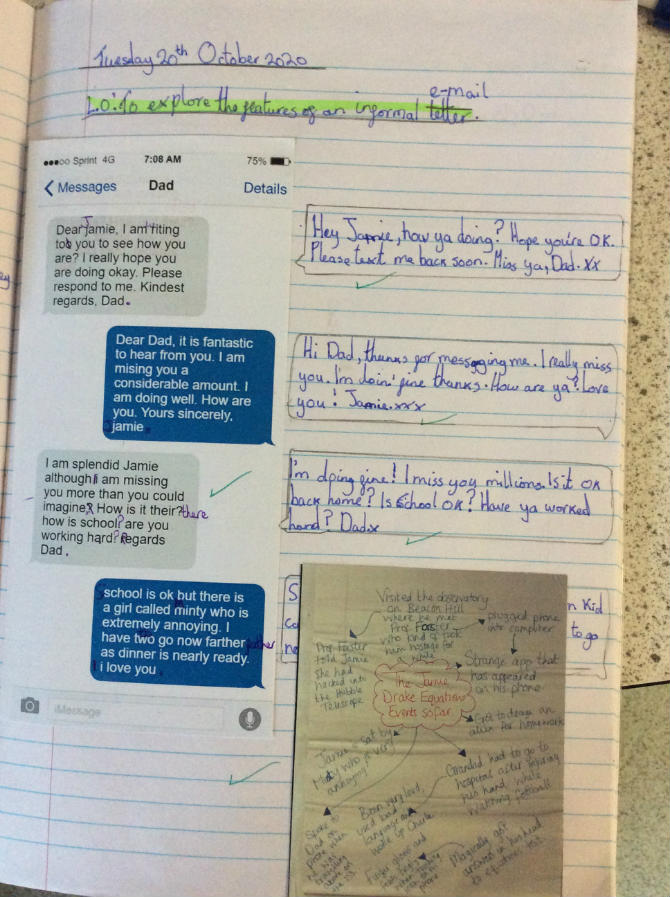 Tuesday 20th October 2020
e-mail
L.O: To explore the features of an informal letter.
Sprint 4G 7:08 AM 75%
Messages Dad Details
Dear Jamie, I am riting
too you to see how you
are? I really hope you
are doing okay. Please
respond to me. Kindest
regards, Dad.
Hey Jamie, how ya doing? Hope you're OK.
Please text me back soon. Miss ya, Dad. xx
Dear Dad, it is fantastic
to hear from you. I am
mising you a
considerable amount. I
am doing well. How are
you. Yours sincerely,
jamie.
Hi Dad, thanks for messaging me. I really miss
you. I'm doin' fine thanks. How are ya? Love
you! Jamie.xxx
I am splendid Jamie
although I am missing
you more than you could
imagine? How is it their? there
how is school? are you
working hard? Regards
Dad.
I'm doing fine! I miss you millions. Is it OK
back home? Is School OK? Have ya worked
hard? Dad.x
School is ok but there is
a girl called minty who is
extremely annoying. I
have two go now farther father
as dinner is nearly ready.
I i love you.
iMessage
S
n Kid
to go
Visited the observatory
on Beacon Hill
where he met
Prof Forster
who kind of took
him hostage for
a while
plugged phone
into computer
Strange app that
has appeared
on his phone
Prof Forster
told Jamie
she had
hacked into
the Hubble
Telescope
The Jamie
Drake Equation
Events so far
Got to draw an
alien for homework
Jamie sat by
Minty who is very
annoying!
Grandad had to go to
hospital after injuring
his hand while
watching football
Been very loud,
used bad
language and
woke up Charlie
Spoke to
Dad on
phone when
he was
on the ISS
Magically got
answers in his head
to equations test
phone